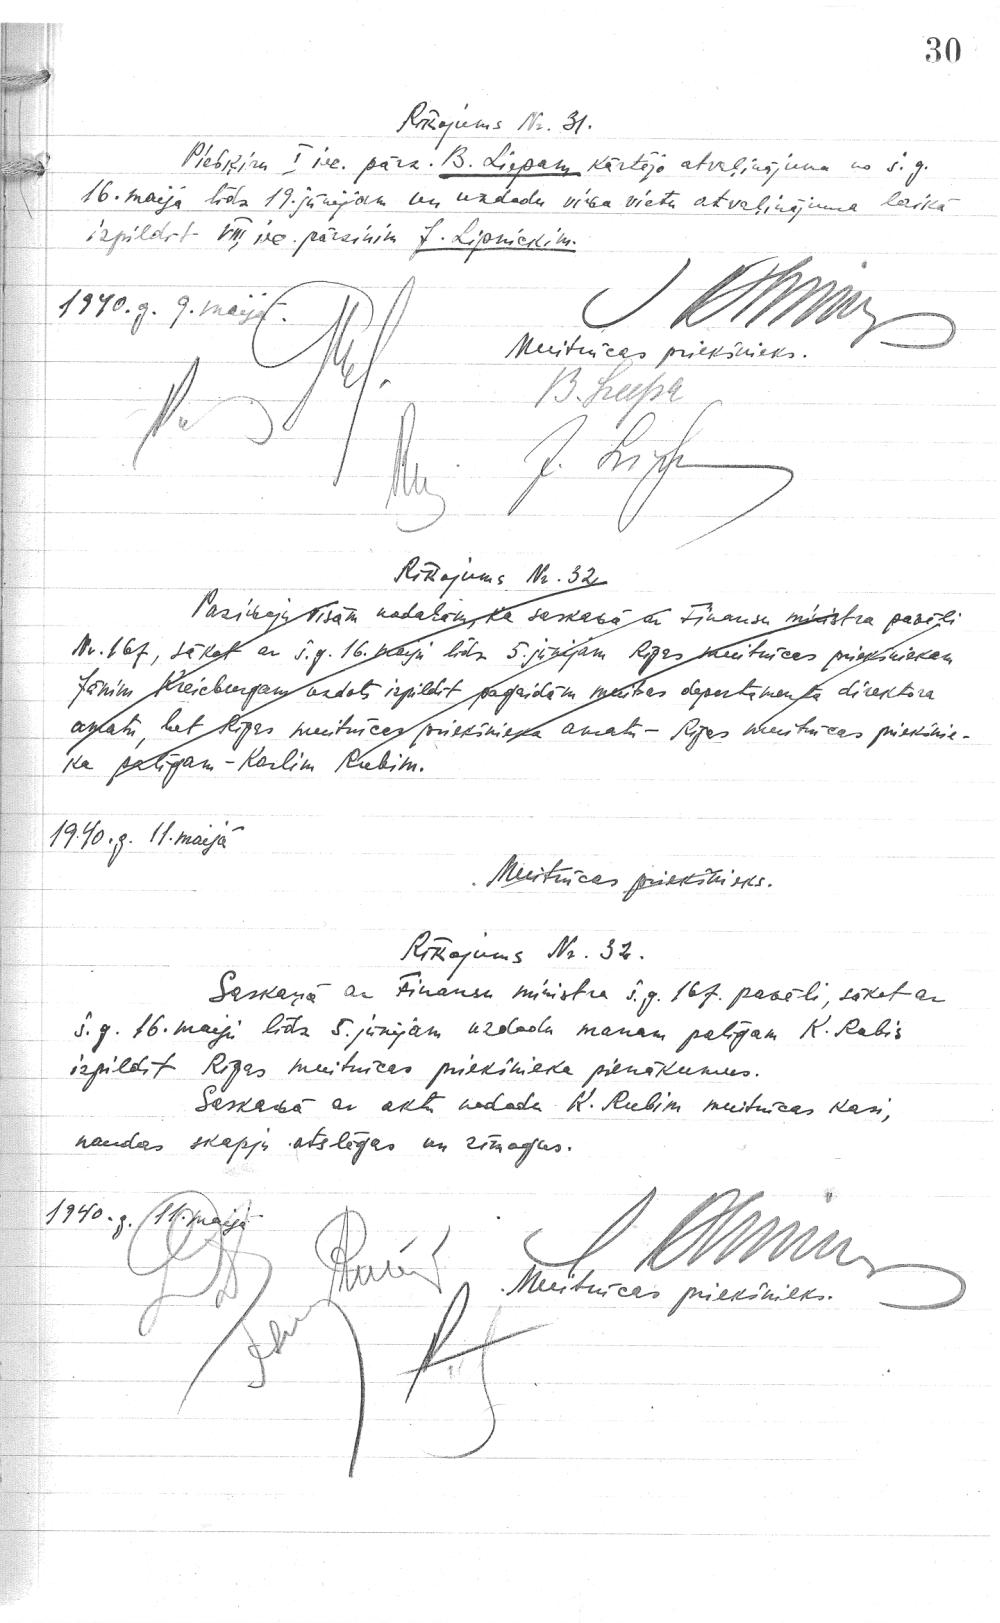 30
Rīkojums Nr. 31.
Piešķiru I iec. pārz. B. Liepam kārtējo atvaļinājumu no š.g.
16. maijā līdz 19. jūnijam un uzdodu viņa vietu atvaļinājuma laikā
izpildīt VIII iec. pārzinim J. Lipnickim.
1940. g. 9. maijā.
Muitnīcas priekšnieks.
B. Liepa
J. Lip
Rīkojums Nr. 32
Paziņoju visām nodaļām, ka saskaņā ar Finansu ministra pavēli
Nr. 167, sākot ar š.g. 16. maiju līdz 5. jūnijam Rīgas muitnīcas priekšniekam
Jānim Kreicbergam uzdots izpildīt pagaidām muitas departamenta direktora
amatu, bet Rīgas muitnīcas priekšnieka amatu – Rīgas muitnīcas priekšnie-
ka palīgam – Kārlim Rubim.
1940. g. 11. maijā
Muitnīcas priekšnieks.
Rīkojums Nr. 32.
Saskaņā ar Finansu ministra š.g. 167. pavēli, sākot ar
š.g. 16. maiju līdz 5. jūnijam uzdodu manam palīgam K. Rubis
izpildīt Rīgas muitnīcas priekšnieka pienākumus.
Saskaņā ar aktu nododu K. Rubim muitnīcas kasi,
naudas skapju atslēgas un zīmogus.
1940. g. 11. maijā
Muitnīcas priekšnieks.